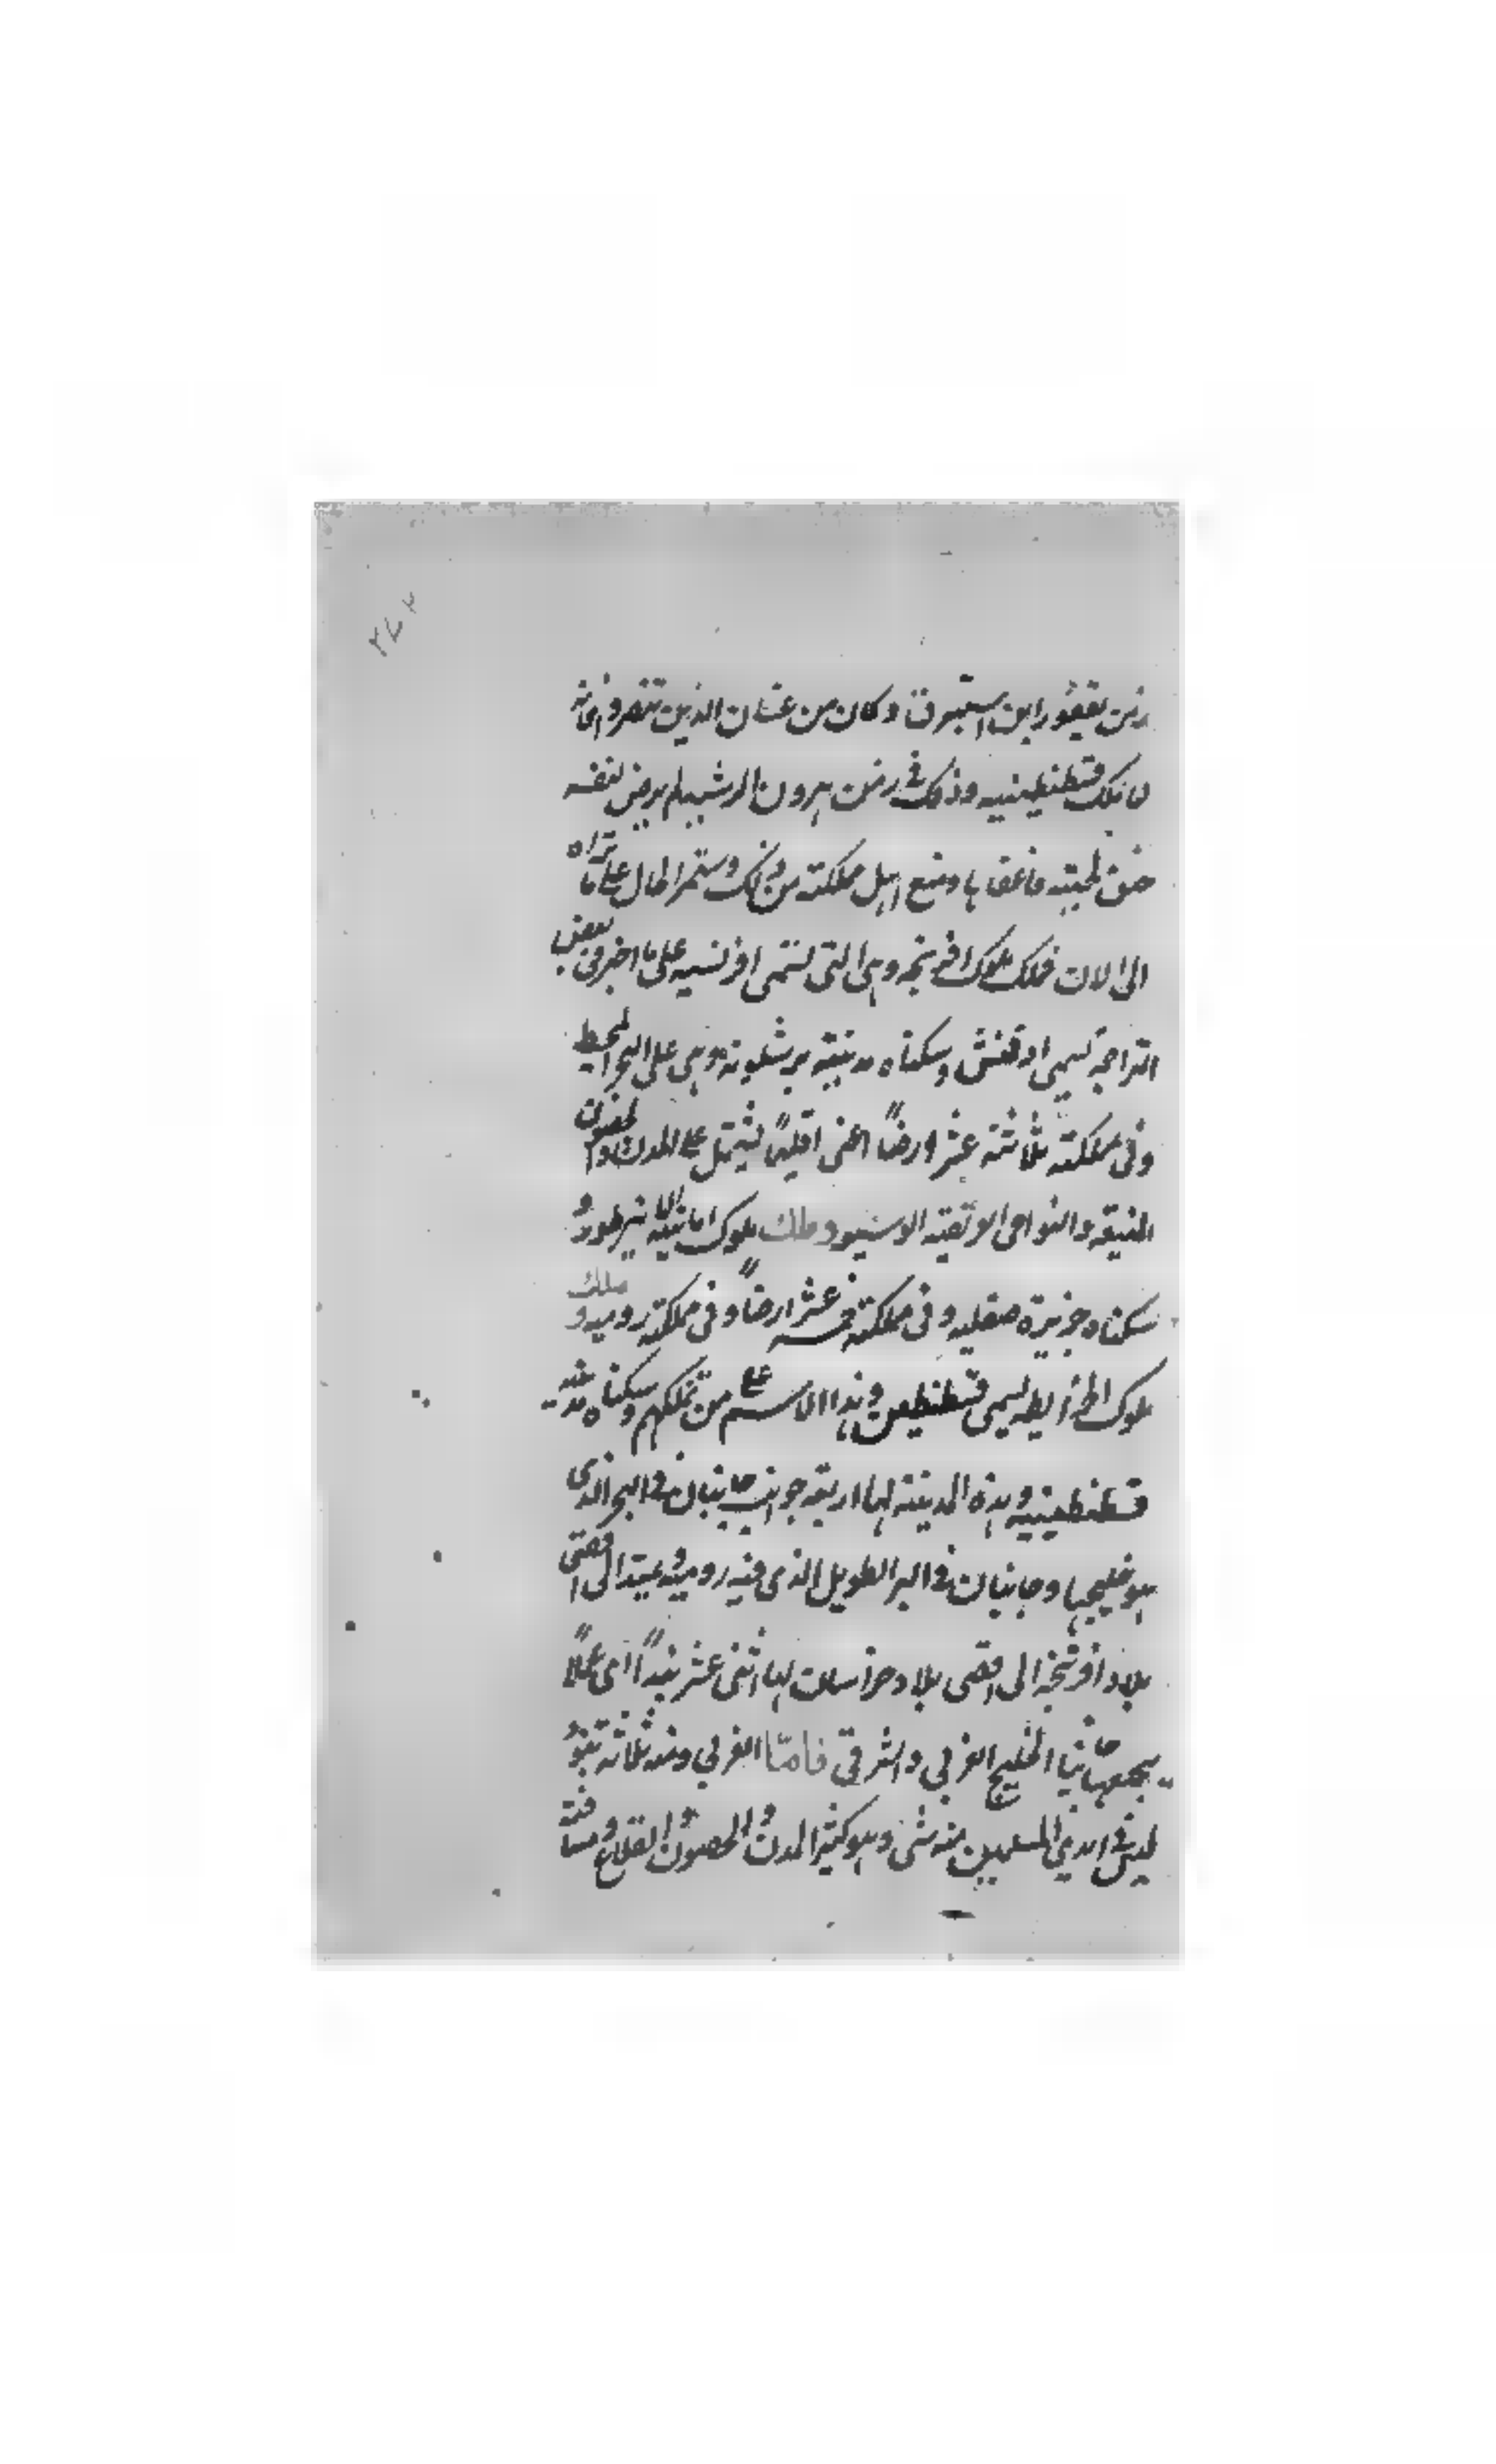 ٢٧٢
زمن نقفور ابن استبراق وكان من غسان الذين تنصروا فانه
لما ملك قسطنطينيه وذلك في زمن هرون الرشيد لم يرض لنفسه
حلق لحيته فاعفاها ومنع اهل مملكته من ذلك وستمر الحال على ما تراه
الى الان فملك ملوك افرنجه وهى التى تسمى افرنسيه على ما اخبرنى بعض
التراجمة يسمى ادفنش وسكناه مدينة برشلونه وهى على البحر المحيط
وفى مملكته ثلاثة عشر ارضاً اعنى اقليماً يشتمل على المدن والحصون
المنيعه والنواحى الوسيعه وملك ملوك امانيه الانبرطور و
سكناه جزيرة صقليه وفى مملكته خمسه عشر ارضاً وفى مملكته روميه و ملك
ملوك يسمى قسطنطين وهذا الاسم على من تملكهم وسكناه مدينه
قسطنطينيه وهذه المدينة لها اربعة جوانب جانبان فى البحر الذى
هو خليجها وجانبان فى البر الطويل الذى فيه روميه ويمتد الى اقصى
بلاد افرنجة الى اقصى بلاد خراسان لها اثنى عشر بنداً اى عملاً
يجمعها جانبا الخليج الغربي والشرقى فامّا الغربي ومنه ثلاثة بنود
ليس فى ايدي المسلمين منه شى وهو كثير المدن والحصون والقلاع ومسافته